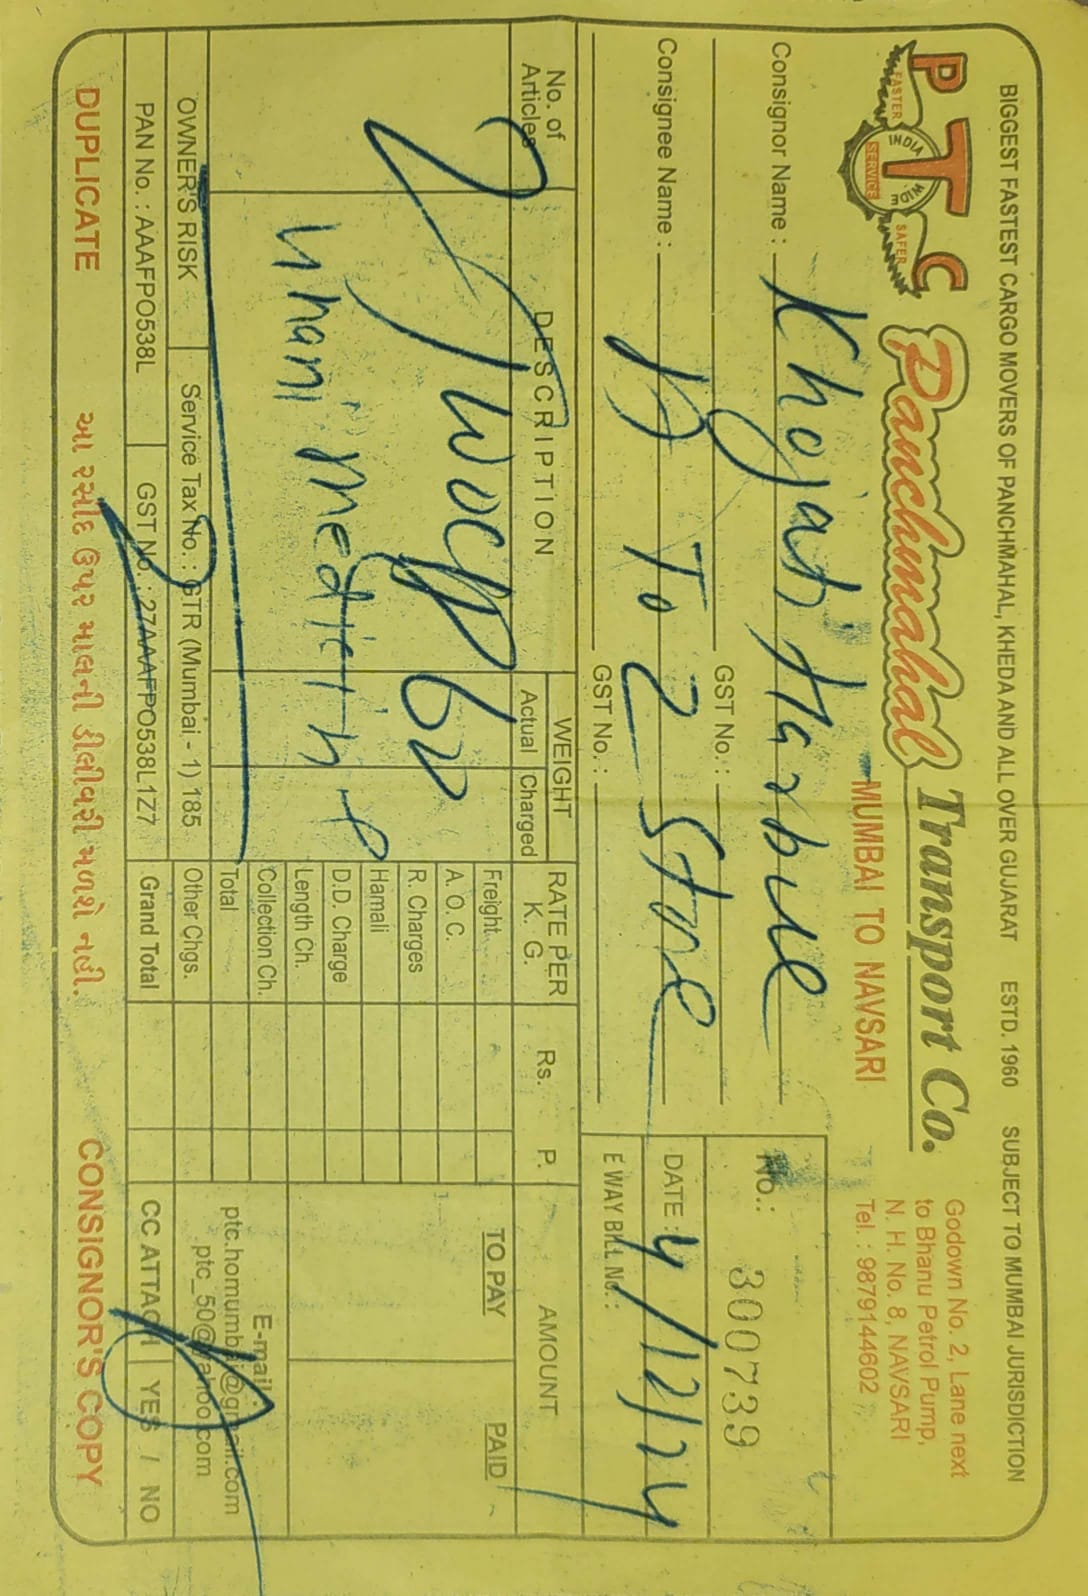 BIGGEST FASTEST CARGO MOVERS OF PANCHMAHAL, KHEDA AND ALL OVER GUJARAT ESTD. 1960 SUBJECT TO MUMBAI JURISDICTION
PTC
FASTER INDIA WIDE SERVICE SAFER
Panchmahal Transport Co.
MUMBAI TO NAVSARI
Godown No. 2, Lane next
to Bhanu Petrol Pump,
N. H. No. 8, NAVSARI
Tel. : 9879144602
Consignor Name :
GST No. :
Consignee Name : A To Z Store
GST No. :
No.: 300739
DATE : 4/12/24
E WAY BILL No. :
No. of Articles DESCRIPTION WEIGHT Actual Charged RATE PER K. G. Rs. P. AMOUNT
TO PAY PAID
Freight
A. O. C.
R. Charges
Hamali
D.D. Charge
Length Ch.
Collection Ch.
Total
Other Chgs.
Grand Total
E-mail
ptc.homumbai@gmail.com
ptc_50@yahoo.com
OWNER'S RISK Service Tax No. : GTR (Mumbai - 1) 185
PAN No. : AAAFPO538L GST No. : 27AAAFPO538L1Z7
CC ATTACH YES / NO
DUPLICATE આ રસીદ ઉપર માલની ડીલીવરી મળશે નહીં. CONSIGNOR'S COPY